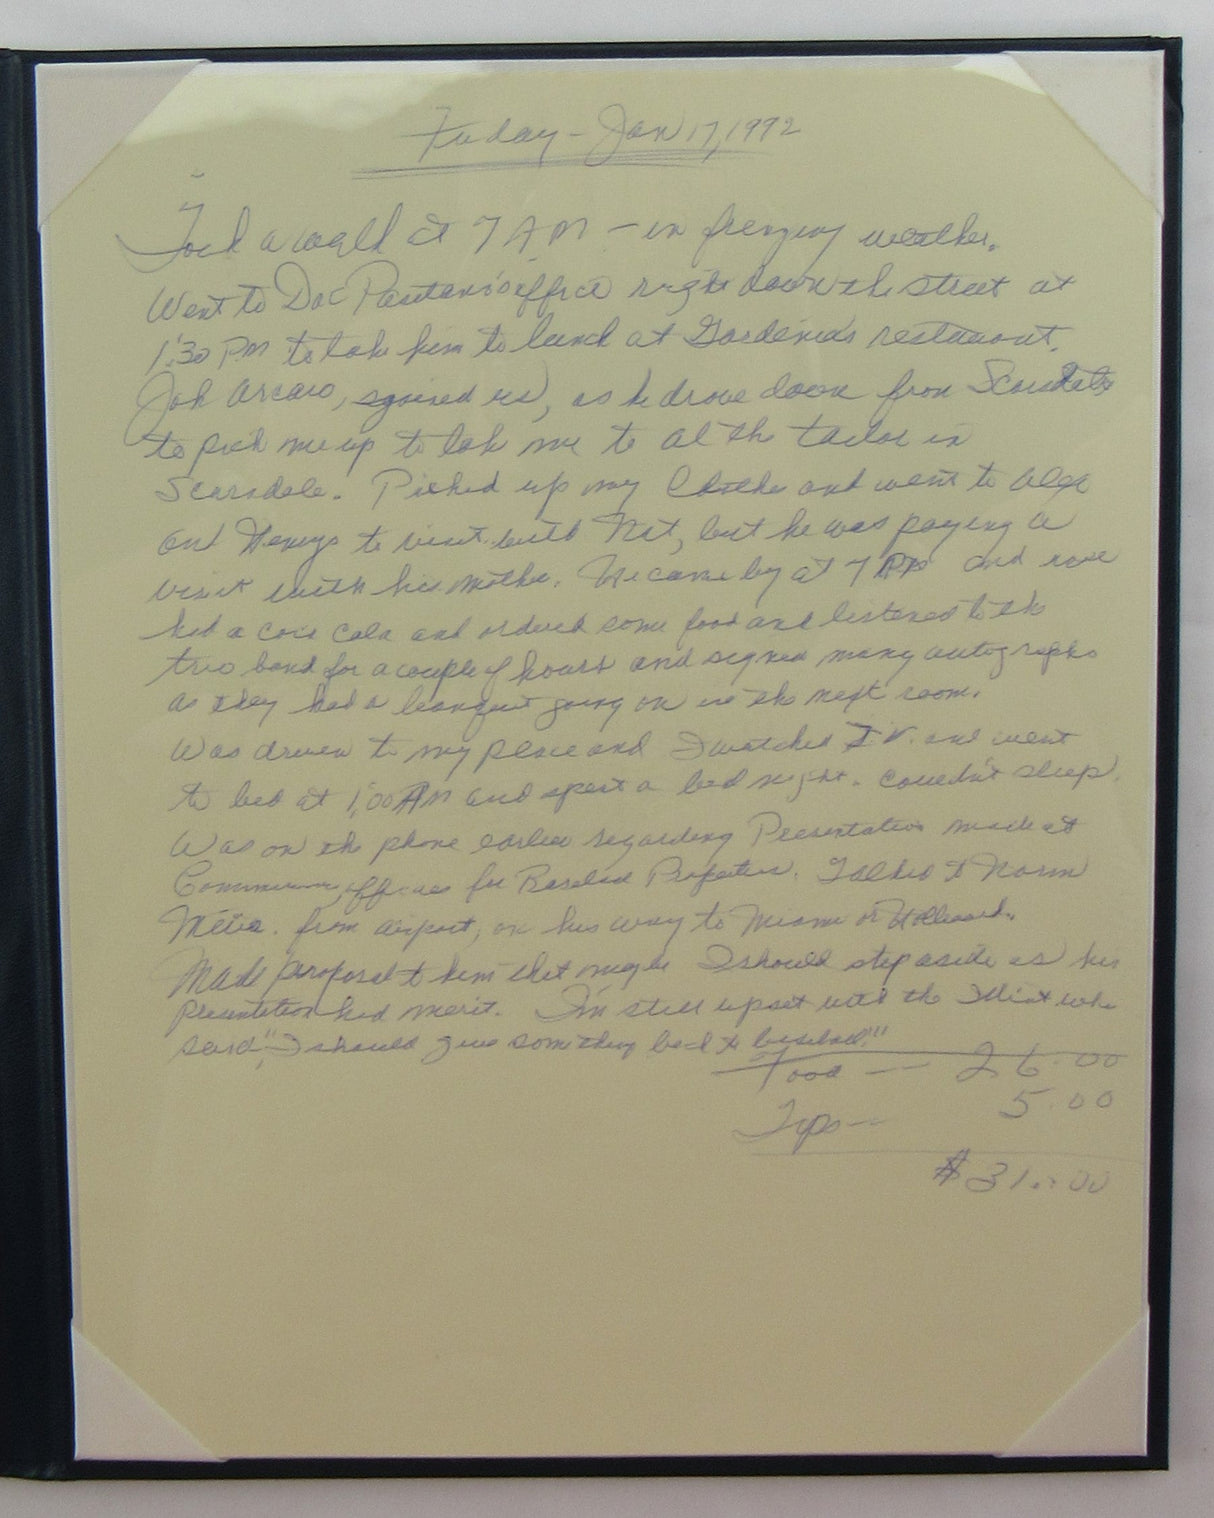 Friday - Jan 17, 1992
Took a walk at 7 AM - in freezing weather.
Went to Doc office right down the street at
1:30 PM to take him to lunch at restaurant.
Joh Arcaro, joined us, as he drove down from Scarsdale
to pick me up to take me to Al the tailor in
Scarsdale. Picked up my clothe and went to Alex
and Henrys to visit with Nat, but he was paying a
visit with his mother. He came by at 7 PM and we
had a coca cola and ordered some food and listened to the
trio band for a couple of hours and signed many autographs
as they had a banquet going on in the next room.
Was driven to my place and I watched T.V. and went
to bed at 1:00 AM and spent a bad night. Couldn't sleep.
Was on the phone earlier regarding Presentation made at
offices for Baseball Properties. Talked to Norm
from airport, on his way to Miami or
Made proposal to him that maybe I should step aside as his
Presentation had merit. I'm still upset with the who
said, "I should give something back to baseball."
Food — 26.00
Tips — 5.00
$31.00